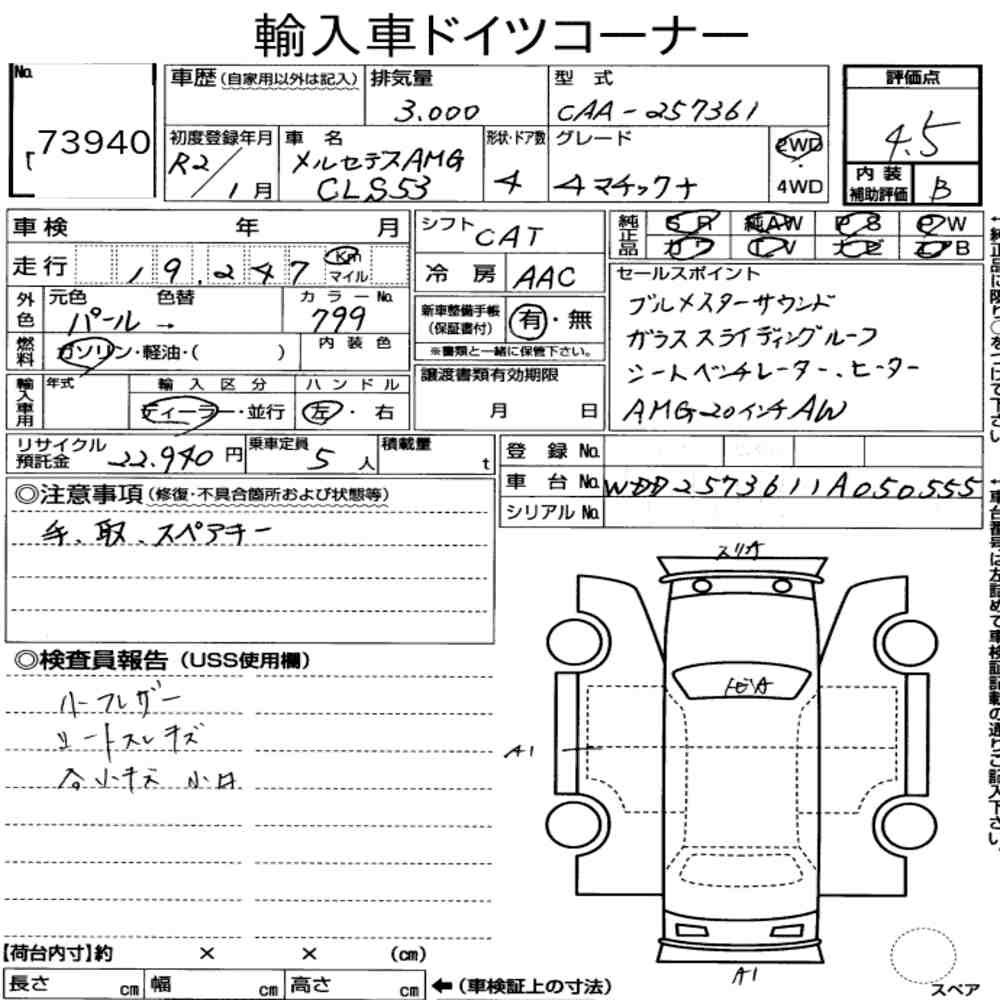 輸入車ドイツコーナー
No.
73940
車歴 (自家用以外は記入)
排気量
3.000
型式
CAA-257361
初度登録年月
R2/1月
車名
メルセデスAMG
CLS53
形状・ドア数
4
グレード
4マチックナ
2WD
・
4WD
評価点
4.5
内装
補助評価
B
車検 年 月
走行 19,247 Km
マイル
外色
元色 色替
パール→
カラーNo.
799
燃料
ガソリン・軽油・( )
内装色
輸入車用
年式
輸入区分
ディーラー・並行
ハンドル
左・右
シフト
CAT
冷房
AAC
新車整備手帳
(保証書付)
有・無
※書類と一緒に保管下さい。
譲渡書類有効期限
月 日
純正品
SR 純AW PS PW
カワ TV ナビ エアB
セールスポイント
ブルメスターサウンド
ガラススライディングルーフ
シートベンチレーター、ヒーター
AMG20インチAW
リサイクル
預託金
22.940円
乗車定員
5人
積載量
t
登録No.
車台No. WDD2573611A050555
シリアルNo.
◎注意事項(修復・不具合箇所および状態等)
手、取、スペアキー
◎検査員報告(USS使用欄)
ハーフレザー
シートスレキズ
各小キズ 小凹
スリA
トビA
A1
A1
【荷台内寸】約 × × (cm)
長さ cm 幅 cm 高さ cm
←(車検証上の寸法)
スペア
↑純正品に限り○をつけて下さい
↑車台番号は左詰めで車検証記載の通りご記入下さい。